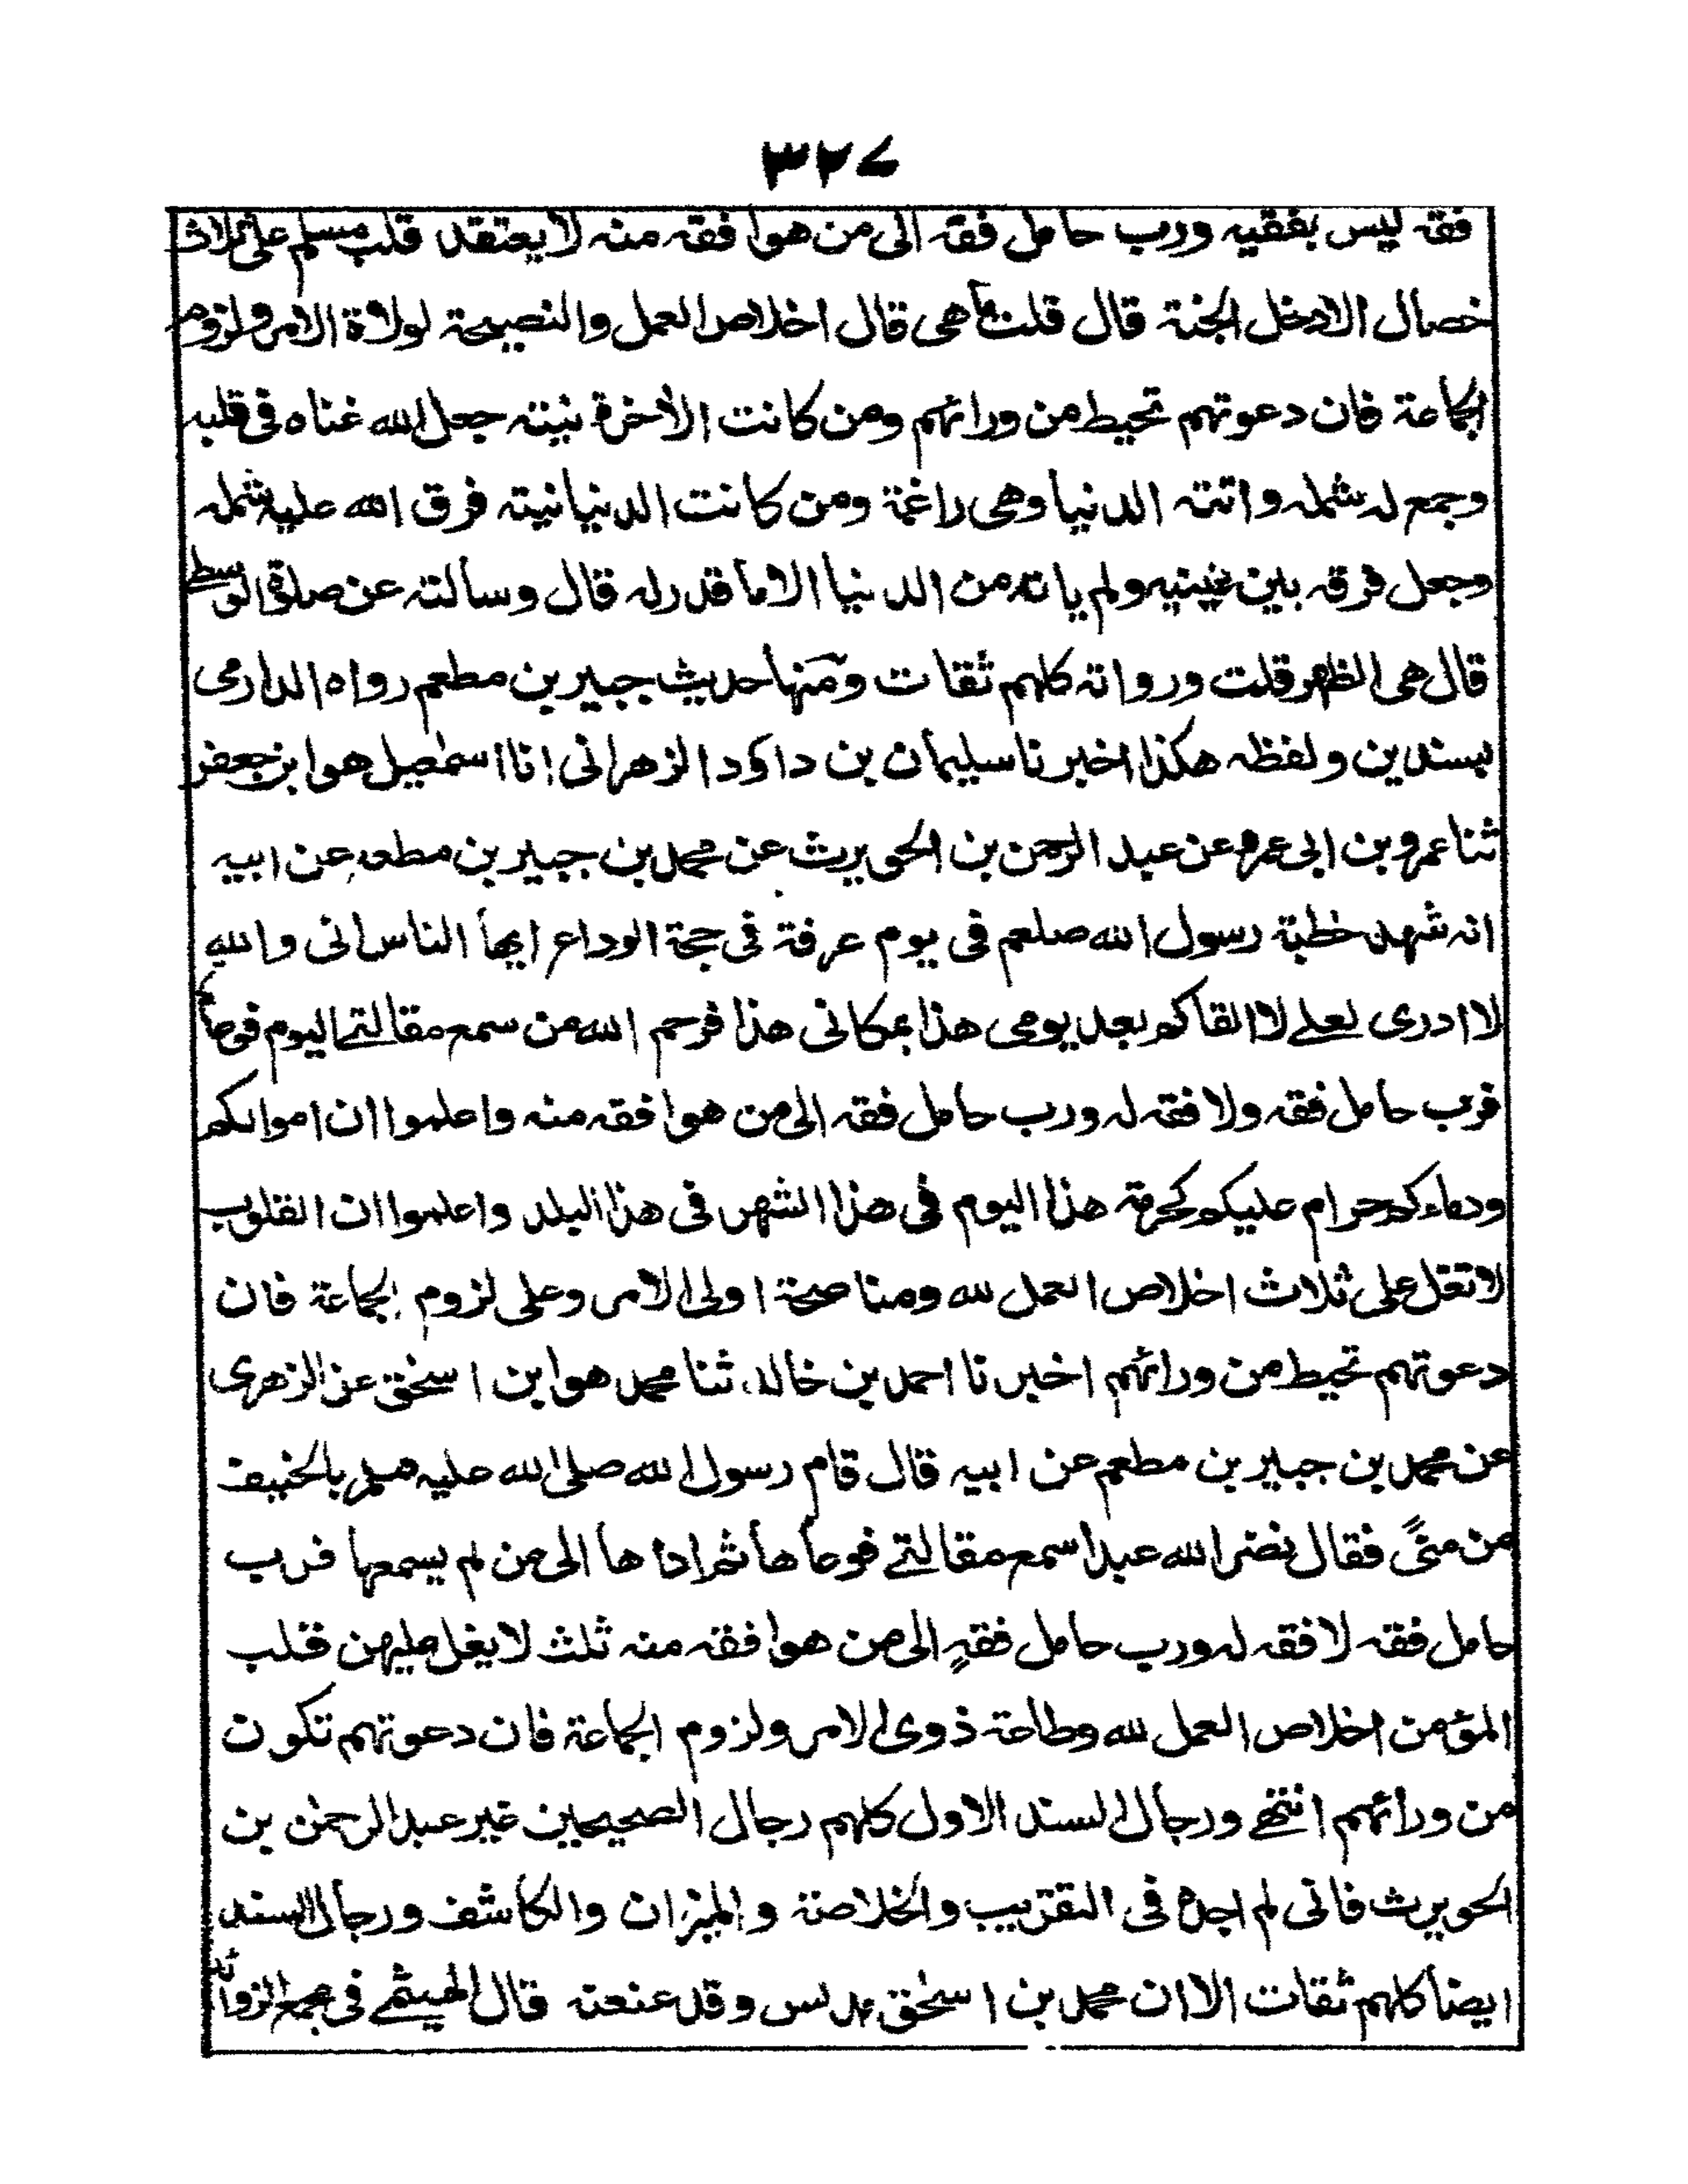 ٣٢٧
فقہ لیس بفقیہ ورب حامل فقہ الی من هوا فقہ منہ لا یعتقد قلب مسلم علی ثلاث
خصال الا دخل الجنة قال قلت ما هی قال اخلاص العمل والنصیحۃ لولاة الامر ولزوم
الجماعۃ فان دعوتهم تحیط من ورائهم ومن کانت الاٰخرۃ نیتہ جعل الله غناه فی قلبہ
وجمع لہ شملہ واتتہ الدنیا وهی راغمۃ ومن کانت الدنیا نیتہ فرق الله علیہ شملہ
وجعل فرقہ بین عینیہ ولم یاتہ من الدنیا الا ما قدر لہ قال وسألتہ عن صلوۃ الوسطے
قال هی الظهر قلت ورواتہ کلهم ثقات ومنها حدیث جبیر بن مطعم رواه الدارمی
بسندین ولفظہ هکذا اخبرنا سلیمان بن داؤد الزهرانی انا اسمٰعیل هوا بن جعفر
ثنا عمرو بن ابی عمرو عن عبد الرحمن بن الحویرث عن محمد بن جبیر بن مطعم عن ابیہ
انہ شهد خطبۃ رسول الله صلعم فی یوم عرفۃ فی حجۃ الوداع ایها الناس انی والله
لا ادری لعلے لا القاکم بعد یومی هذا بمکانی هذا فرحم الله من سمع مقالتے الیوم فوعاها
فرب حامل فقہ ولا فقہ لہ ورب حامل فقہ الی من هوا فقہ منہ واعلموا ان اموالکم
ودماءکم حرام علیکم کحرمۃ هذا الیوم فی هذا الشهر فی هذا البلد واعلموا ان القلوب
لا تغل علی ثلاث اخلاص العمل لله ومناصحۃ اولی الامر وعلی لزوم الجماعۃ فان
دعوتهم تحیط من ورائهم اخبرنا احمد بن خالد ثنا محمد هوا بن اسحٰق عن الزهری
عن محمد بن جبیر بن مطعم عن ابیہ قال قام رسول الله صلی الله علیہ وسلم بالخیف
من منیً فقال نضر الله عبدا سمع مقالتے فوعاها ثم اداها الی من لم یسمعها فرب
حامل فقہ لا فقہ لہ ورب حامل فقہٍ الی من هوا فقہ منہ ثلث لا یغل علیهن قلب
المؤمن اخلاص العمل لله وطاعۃ ذوی الامر ولزوم الجماعۃ فان دعوتهم تکون
من ورائهم انتهے ورجال السند الاول کلهم رجال الصحیحین غیر عبد الرحمٰن بن
الحویرث فانی لم اجده فی التقریب والخلاصۃ والمیزان والکاشف ورجال السند
ایضا کلهم ثقات الا ان محمد بن اسحٰق مدلس وقد عنعنہ قال الهیثمے فی مجمع الزوائد